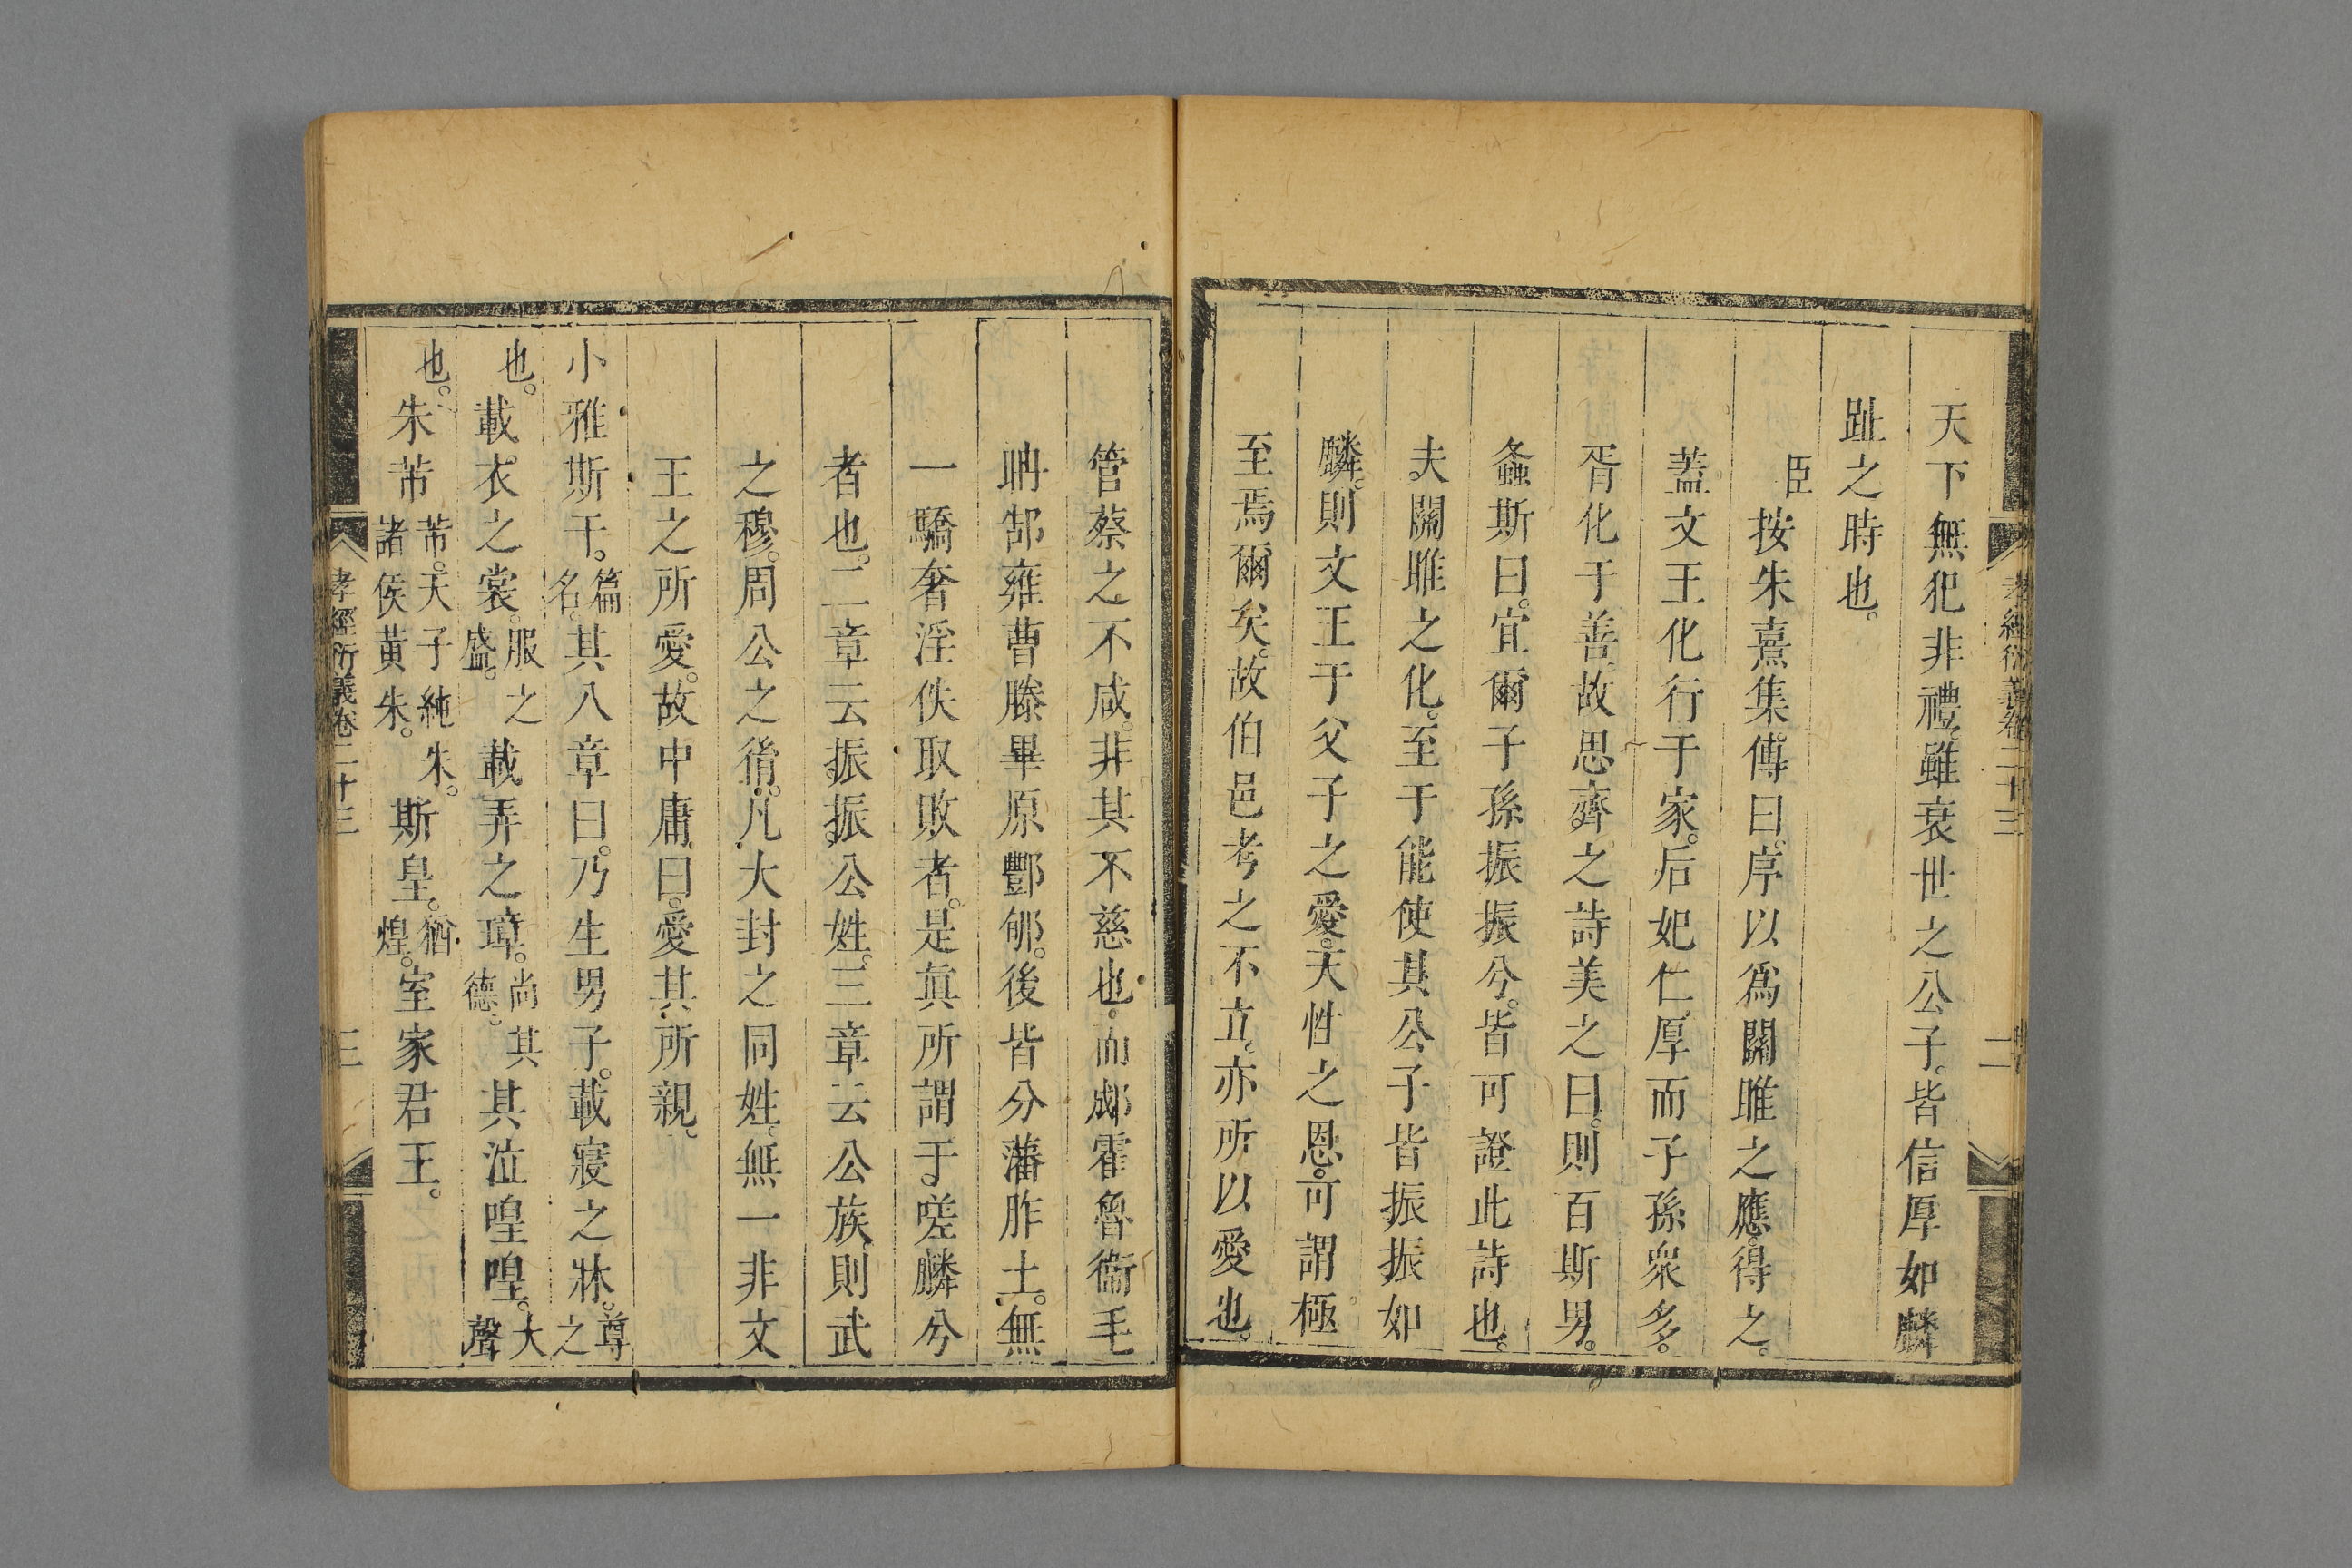 孝經衍義卷二十三
二
天下無犯非禮。雖衰世之公子。皆信厚如麟
趾之時也。
臣按朱熹集傳曰。序以爲關雎之應。得之。
蓋文王化行于家。后妃仁厚而子孫衆多。
胥化于善。故思齊之詩美之曰。則百斯男。
螽斯曰。宜爾子孫振振兮。皆可證此詩也。
夫關雎之化。至于能使其公子皆振振如
麟。則文王于父子之愛。天性之恩。可謂極
至焉爾矣。故伯邑考之不立。亦所以愛也。
管蔡之不咸。非其不慈也。而郕霍魯衞毛
聃郜雍曹滕畢原酆郇。後皆分藩胙土。無
一驕奢淫佚取敗者。是眞所謂于嗟麟兮
者也。二章云振振公姓。三章云公族則武
之穆。周公之胤。凡大封之同姓。無一非文
王之所愛。故中庸曰。愛其所親。
小雅斯干。篇名。其八章曰。乃生男子。載寢之牀。尊之
也。載衣之裳。服之盛。載弄之璋。尚其德。其泣喤喤。大聲
也。朱芾芾。天子純朱。諸侯黃朱。斯皇。猶煌。室家君王。
孝經衍義卷二十三
三